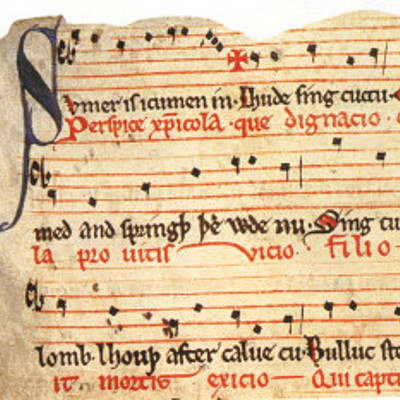 Svmer is icumen in·Lhude sing cuccu·
Perspice xp̄icola·que dignacio·
med and springþ þe wde nu·Sing cu
la pro uitis vicio·filio
lomb·lhouþ after calue cu·Bulluc ste
it mortis exicio Qui capti